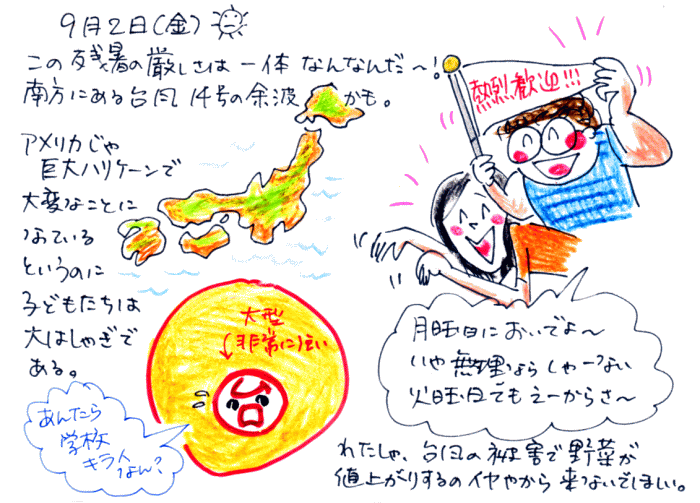 9月2日(金)
この残暑の厳しさは一体なんなんだ〜!
南方にある台風14号の余波かも。
アメリカじゃ
巨大ハリケーンで
大変なことに
なっている
というのに
子どもたちは
大はしゃぎで
ある。
熱烈歓迎!!!
月曜日においでよ〜
いや無理ならしゃーない
火曜日でもえーからさ〜
大型
非常に強い
台
あんたら
学校
キライ
なん?
わたしゃ、台風の被害で野菜が
値上がりするのイヤやから来ないでほしい。